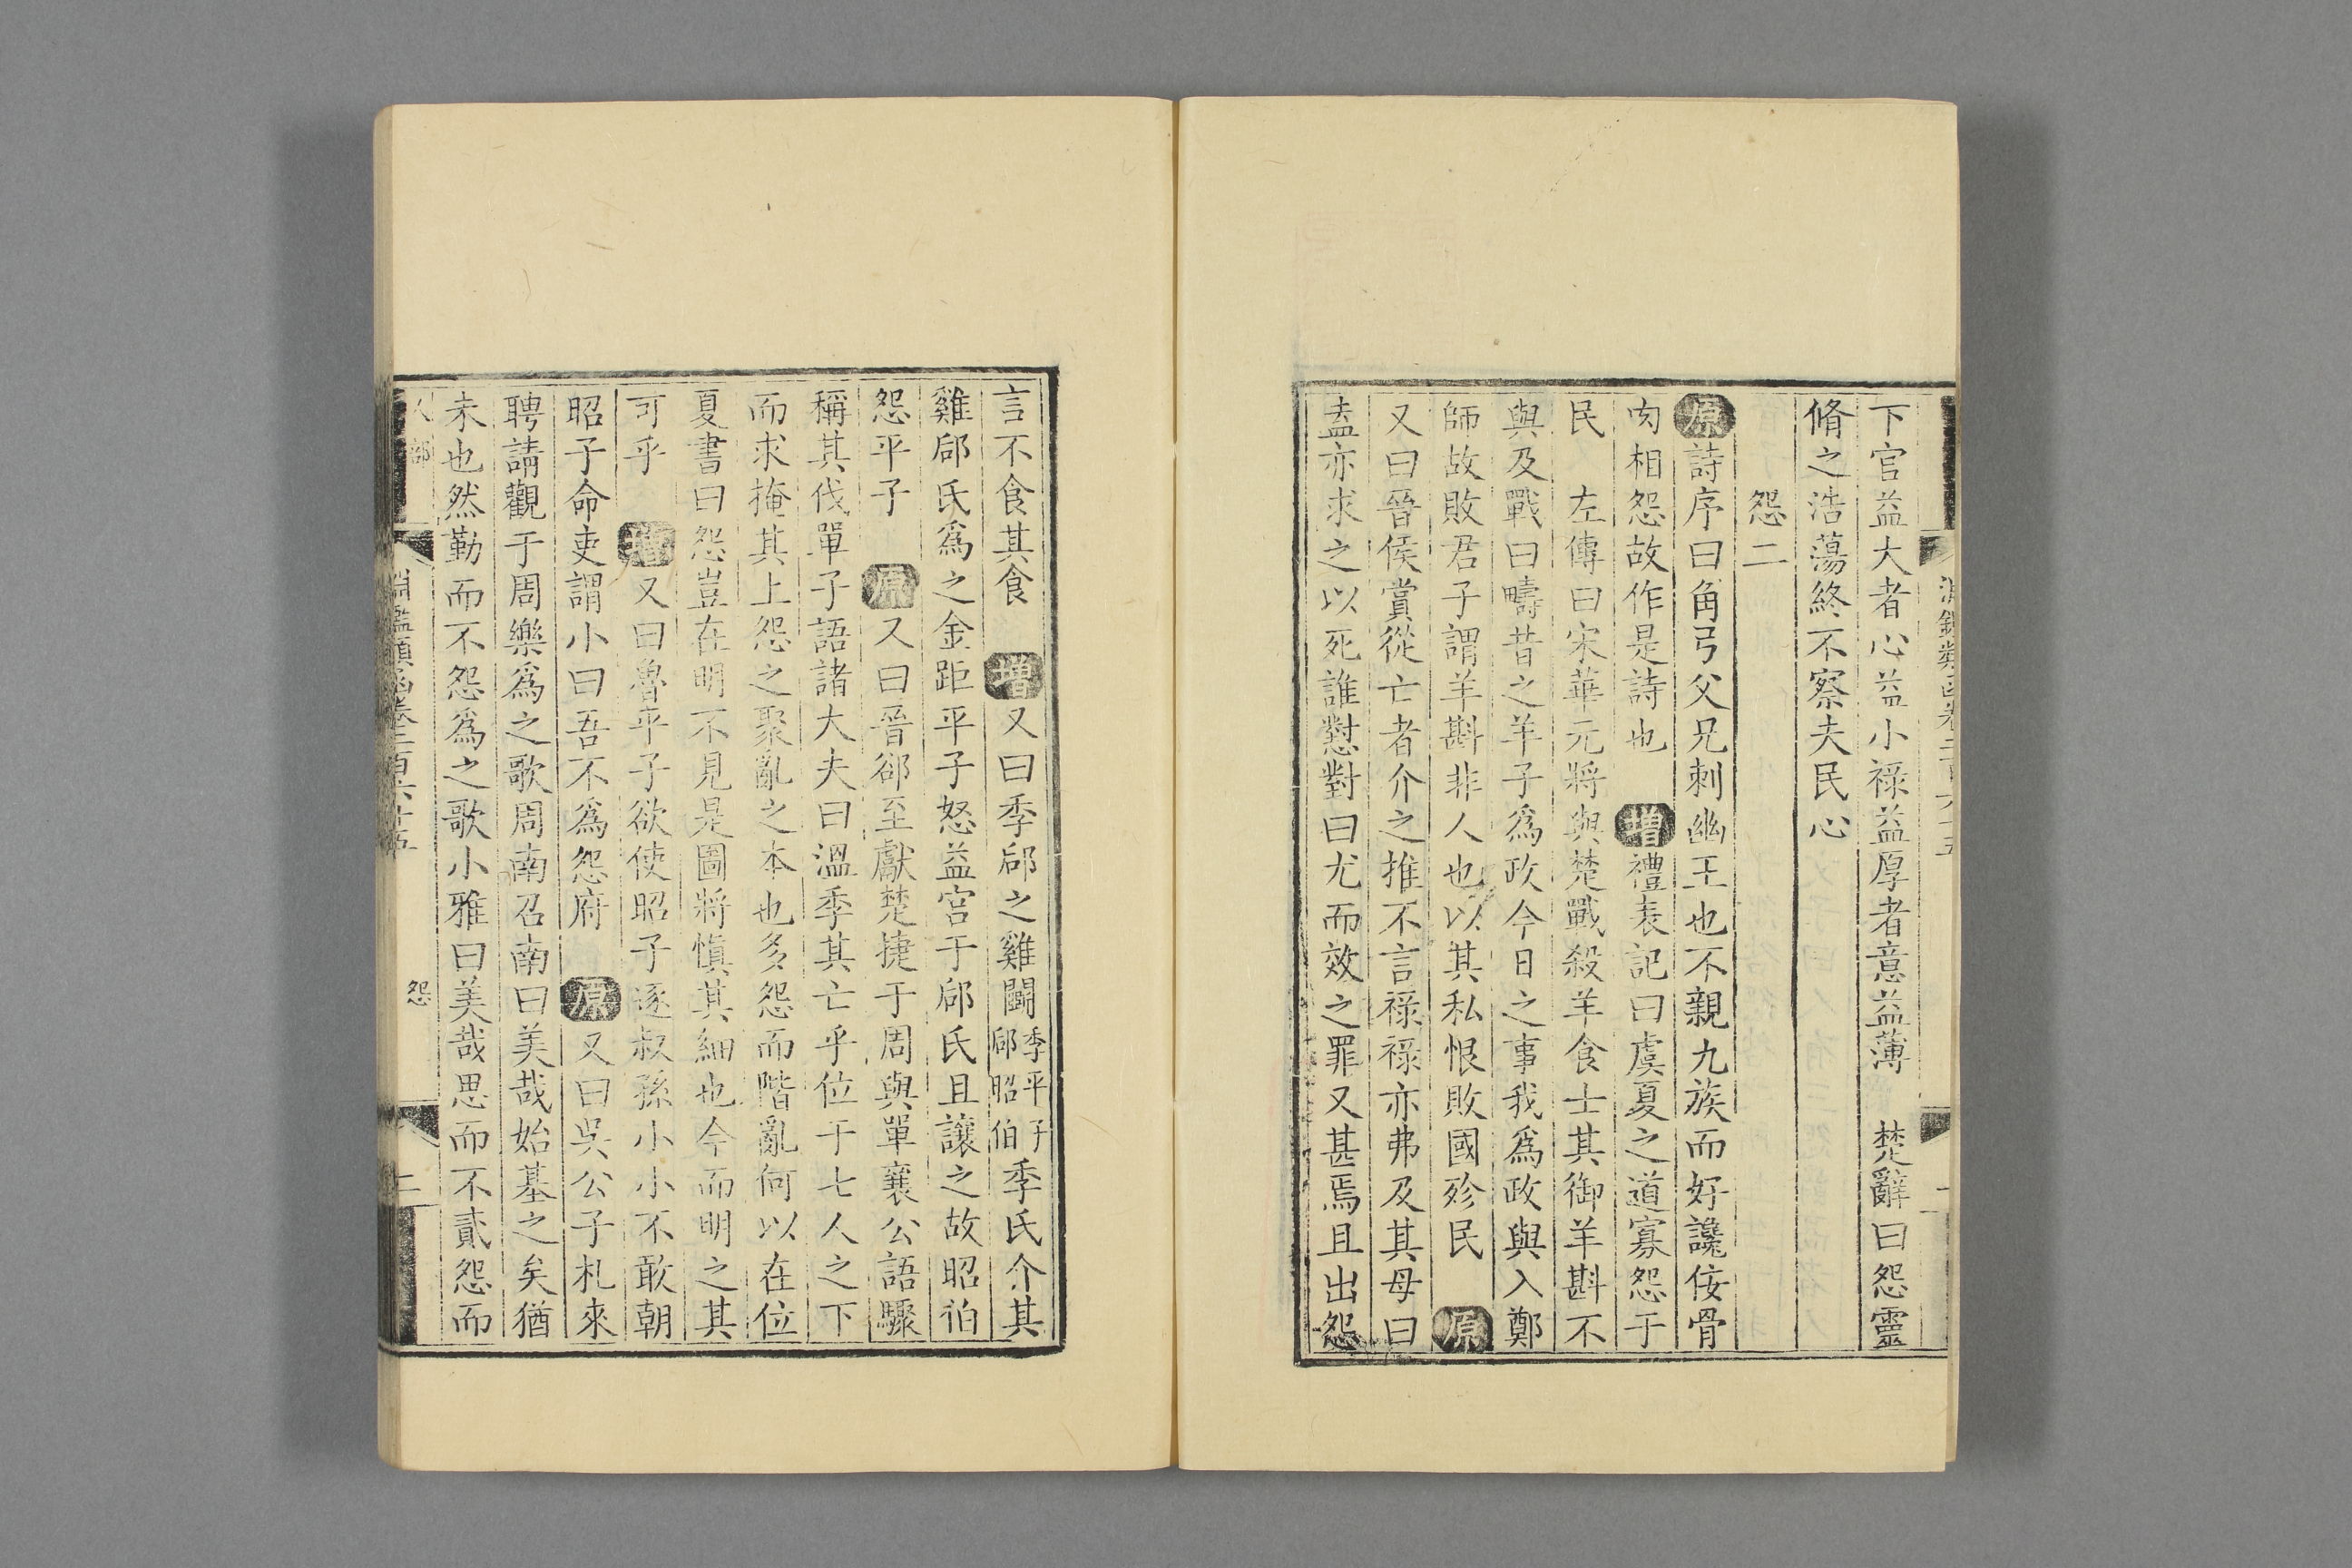 下官益大者心益小祿益厚者意益薄　楚辭曰怨靈
脩之浩蕩終不察夫民心
怨二
原詩序曰角弓父兄刺幽王也不親九族而好讒佞骨
肉相怨故作是詩也　增禮表記曰虞夏之道寡怨于
民　左傳曰宋華元將與楚戰殺羊食士其御羊斟不
與及戰曰疇昔之羊子爲政今日之事我爲政與入鄭
師故敗君子謂羊斟非人也以其私恨敗國殄民　原
又曰晉侯賞從亡者介之推不言祿祿亦弗及其母曰
盍亦求之以死誰懟對曰尤而效之罪又甚焉且出怨
言不食其食　增又曰季郈之雞鬭季平子郈昭伯季氏介其
雞郈氏爲之金距平子怒益宮于郈氏且讓之故昭伯
怨平子　原又曰晉郤至獻楚捷于周與單襄公語驟
稱其伐單子語諸大夫曰溫季其亡乎位于七人之下
而求掩其上怨之聚亂之本也多怨而階亂何以在位
夏書曰怨豈在明不見是圖將慎其細也今而明之其
可乎　增又曰魯平子欲使昭子逐叔孫小小不敢朝
昭子命吏謂小曰吾不爲怨府　原又曰吳公子札來
聘請觀于周樂爲之歌周南召南曰美哉始基之矣猶
未也然勤而不怨爲之歌小雅曰美哉思而不貳怨而
人部
淵鑑類函卷三百六十五
怨
二